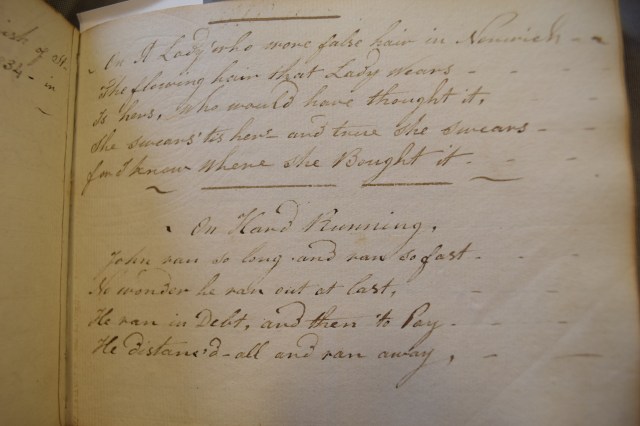 ish of St.
34 - in
On A Lady who wore false hair in Norwich -
The flowing hair that Lady wears -
Is hers, Who would have thought it,
She swears 'tis hers - and true she swears -
for I know Where she Bought it -
On Hard Running,
John ran so long and ran so fast -
No wonder he ran out at last,
He ran in Debt, and then to Pay -
He distanc'd - all and ran away,